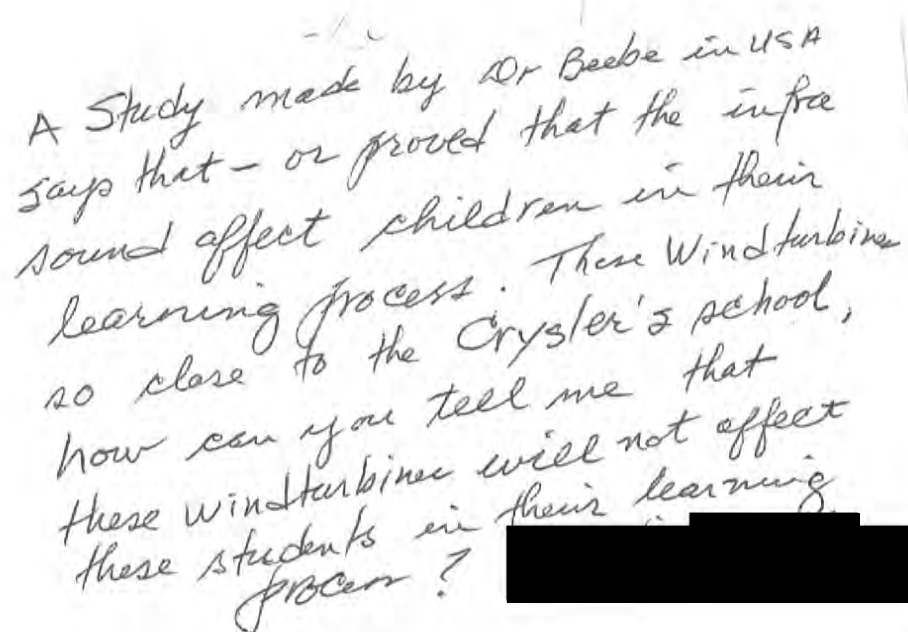 A Study made by Dr Beebe in USA
says that - or proved that the infra
sound affect children in their
learning process. These Windturbines
so close to the Crysler's school,
how can you tell me that
these windturbines will not affect
these students in their learning
process?